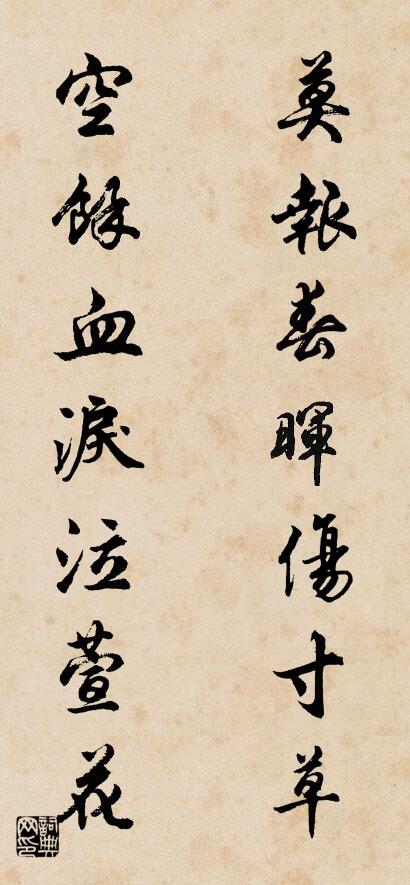 莫報春暉傷寸草
空餘血淚泣萱花
詞典網印